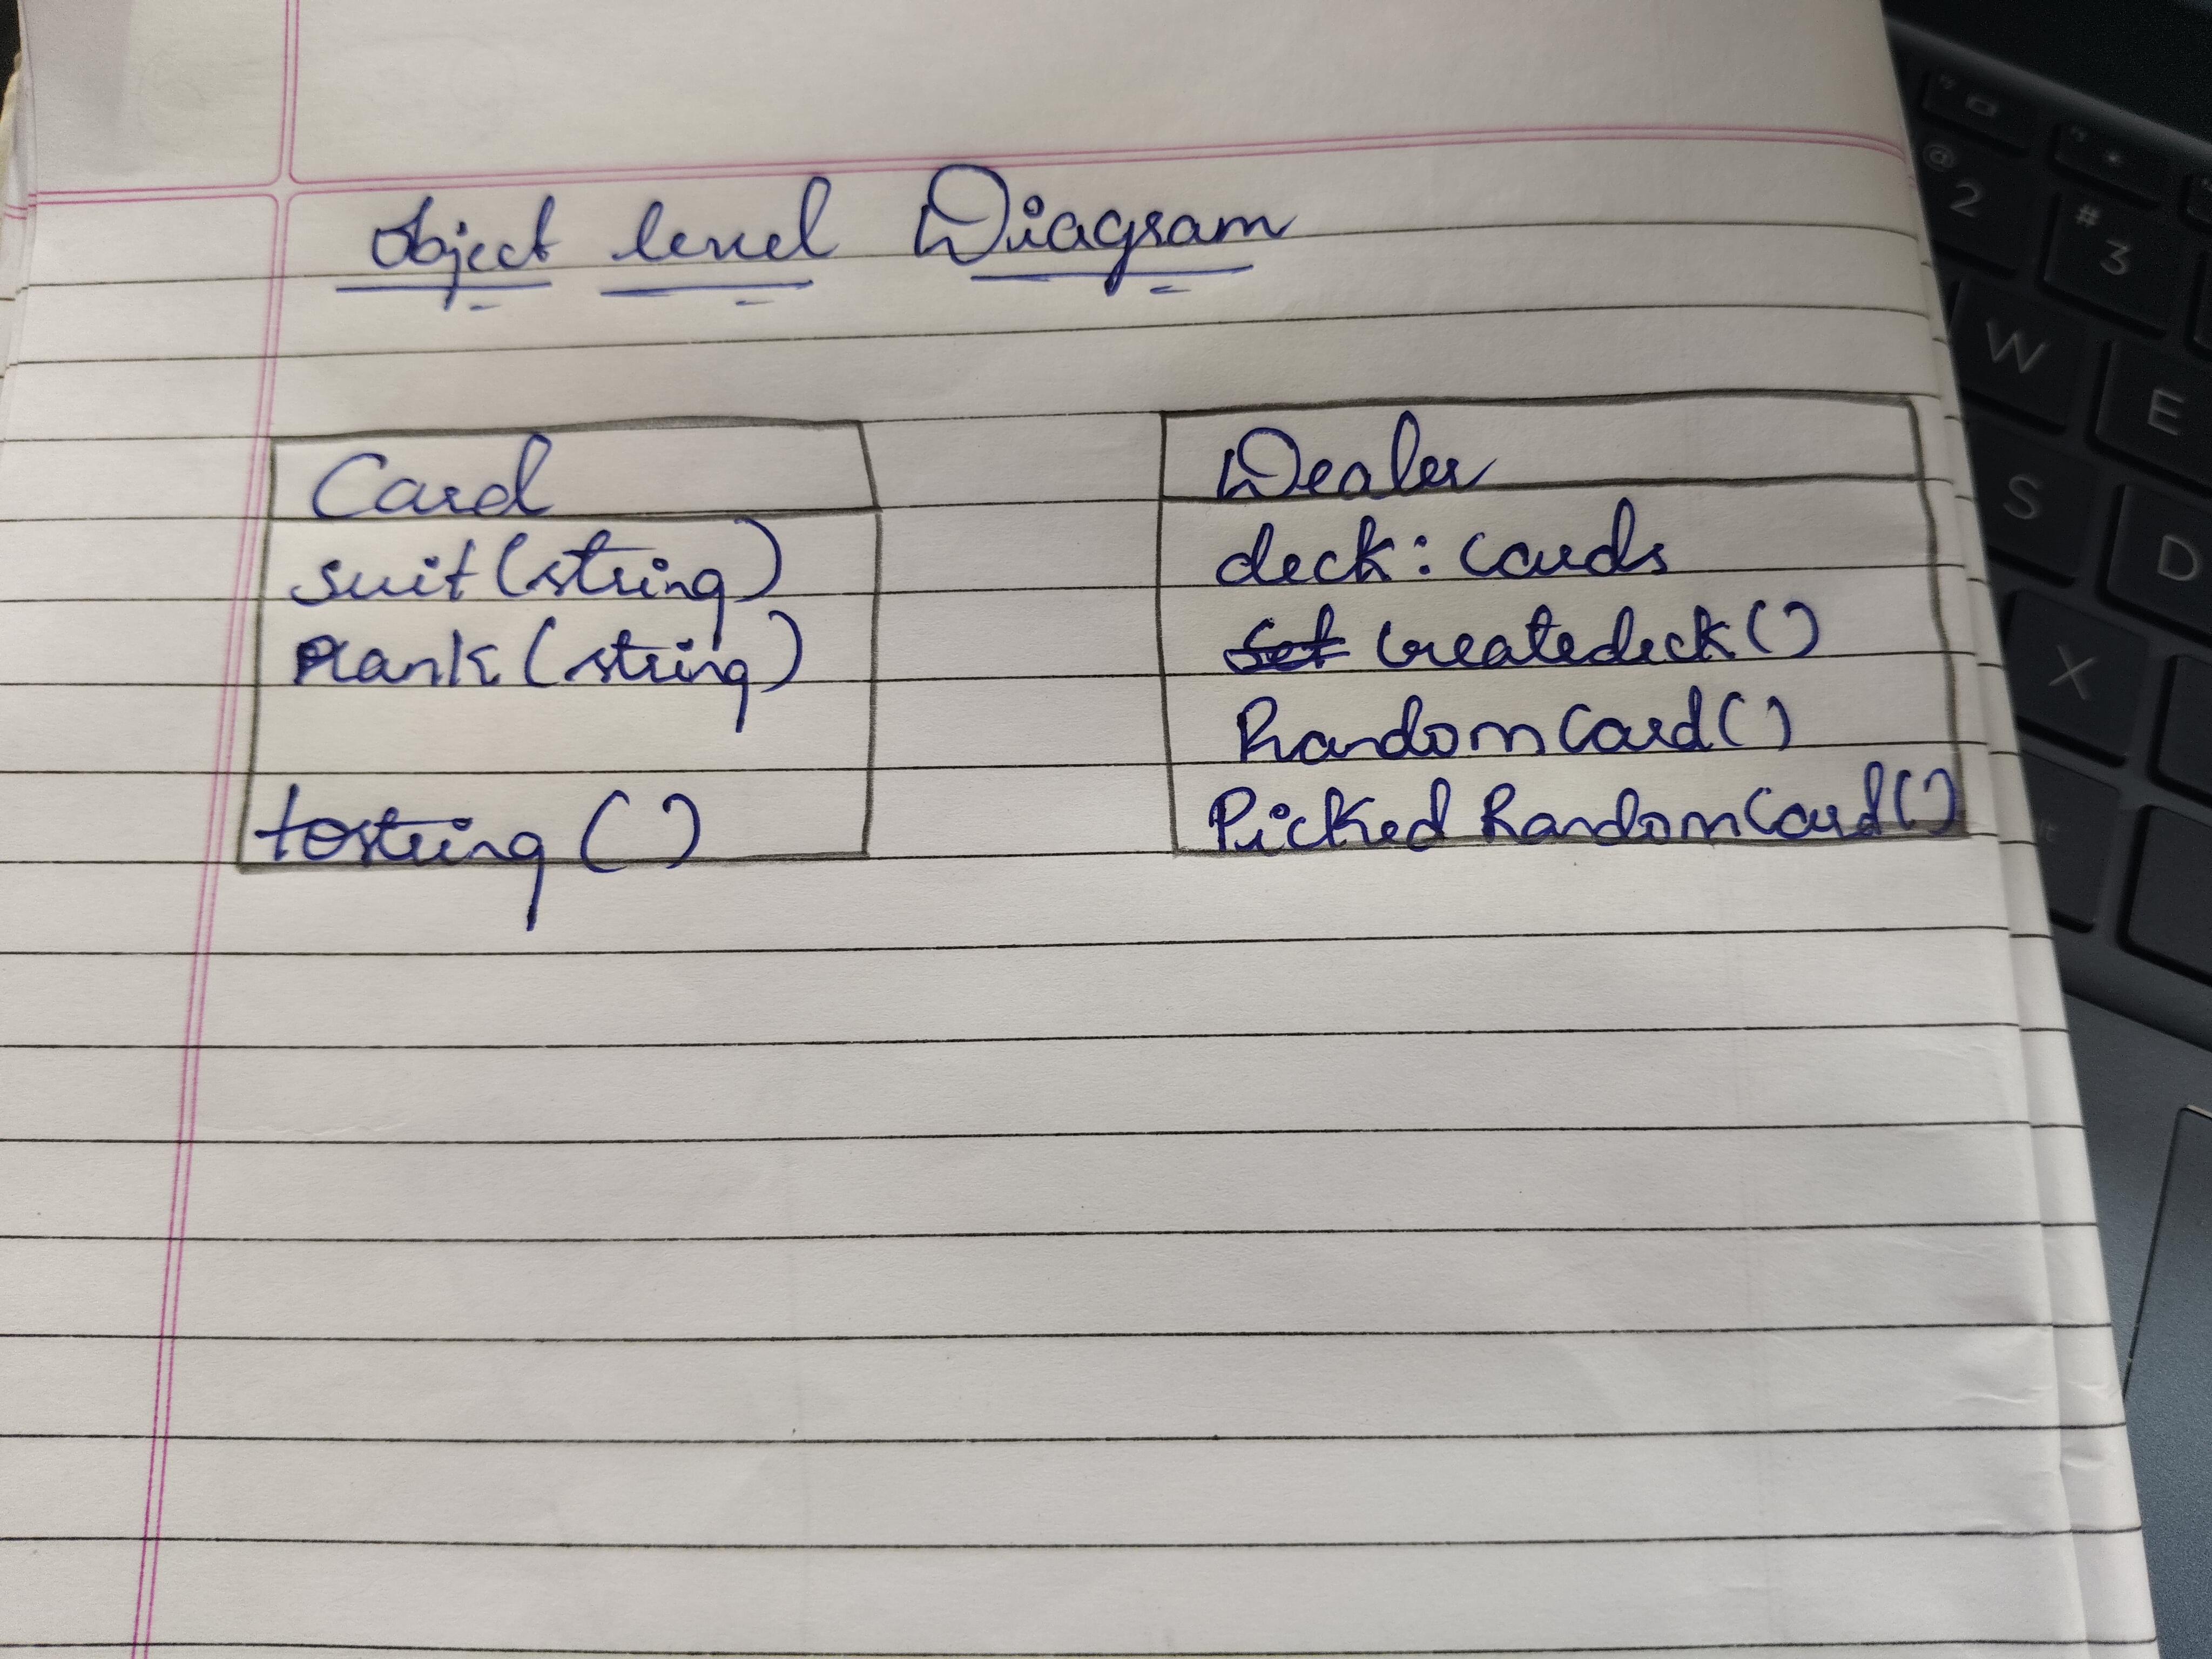 Object level Diagram
Card
suit (string)
Rank (string)
tostring ()
Dealer
deck : cards
Set Createdeck ()
Random Card ()
Picked Random Card ()
@
2
#
3
W
E
S
D
X